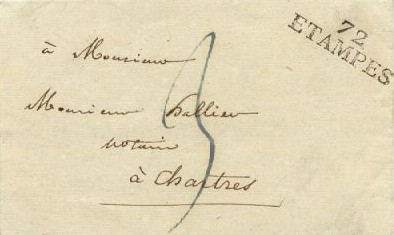 72
ETAMPES
à Monsieur
Monsieur hallier
notaire
à Chartres
3